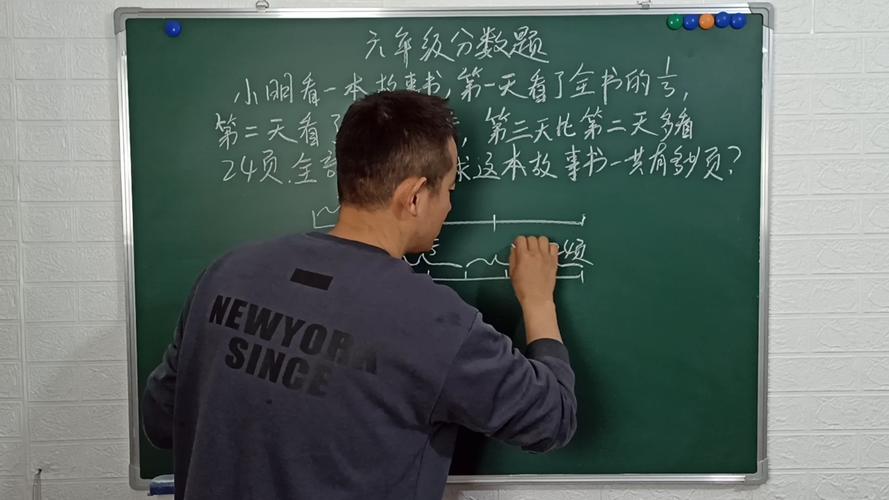 六年级分数题
小明看一本故事书,第一天看了全书的1/3,
第二天看了 ,第三天比第二天多看
24页.全 求这本故事书一共有多少页?
4页
NEWYORK
SINCE